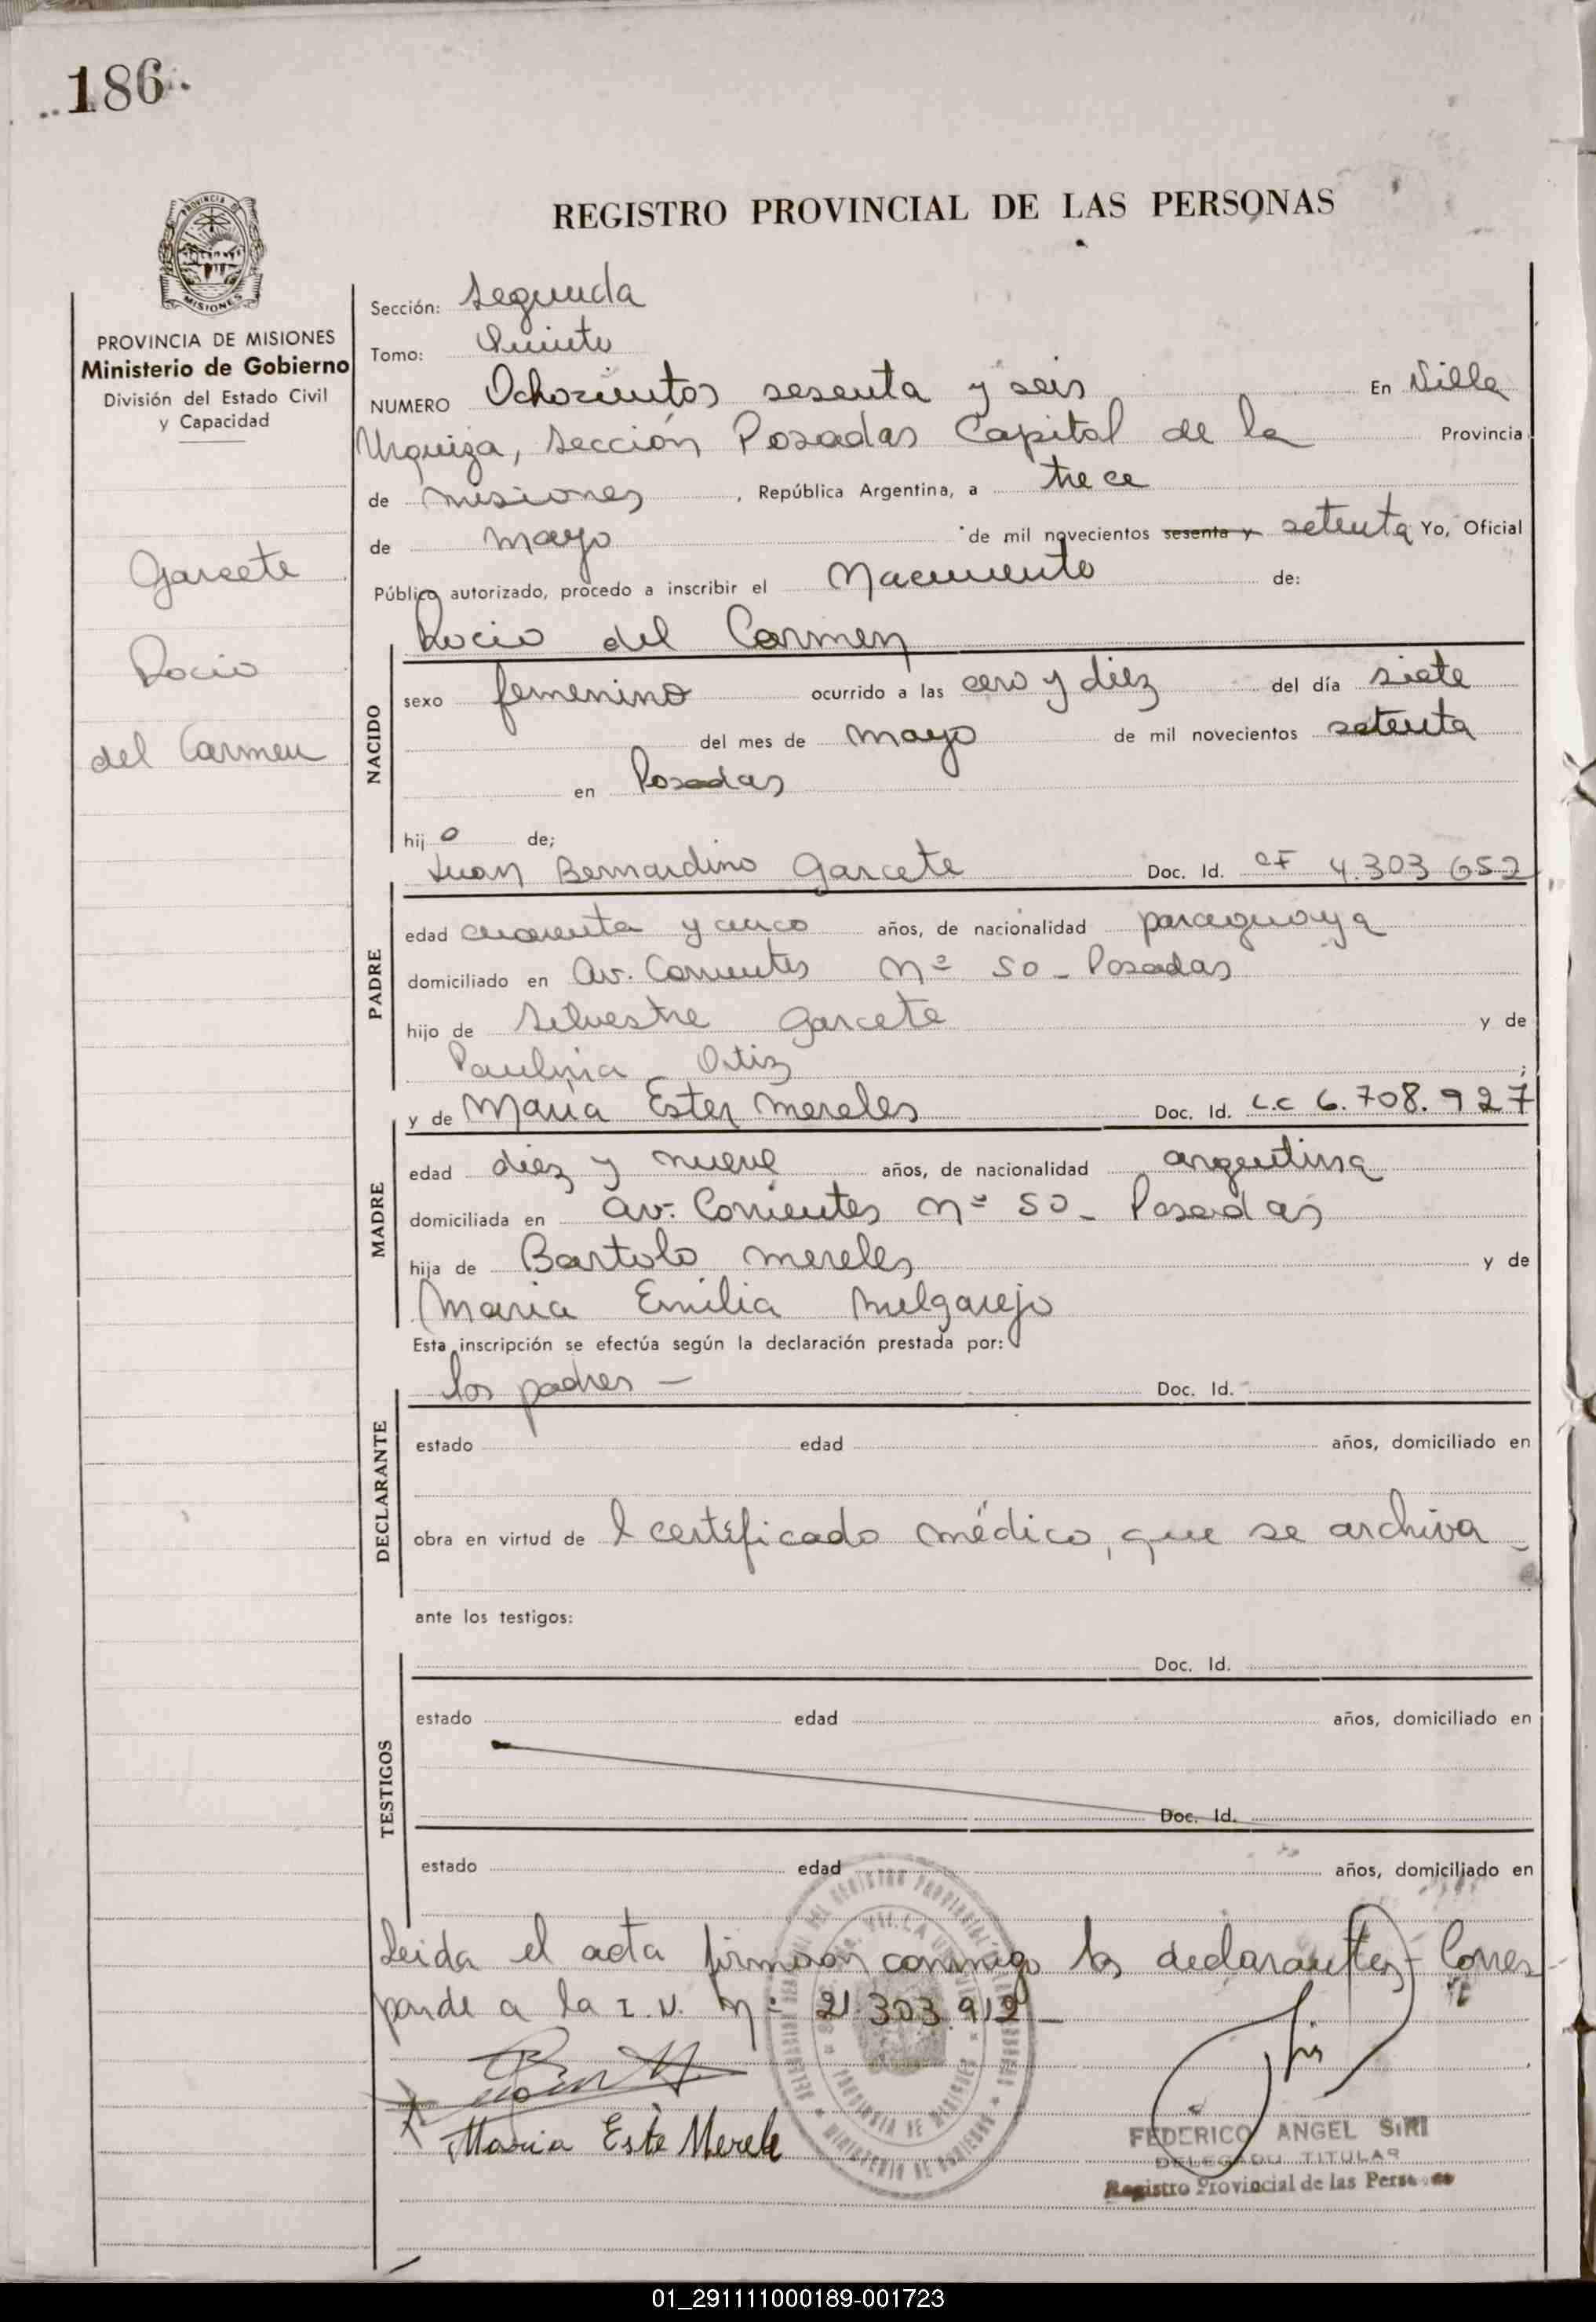 186
REGISTRO PROVINCIAL DE LAS PERSONAS
PROVINCIA DE
MISIONES
PROVINCIA DE MISIONES
Ministerio de Gobierno
División del Estado Civil
y Capacidad
Garcete
Rocio
del Carmen
Sección: Segunda
Tomo: Quinto
NUMERO Ochocientos sesenta y seis En Villa
Urquiza, Sección Posadas Capital de la Provincia
de misiones, República Argentina, a trece
de mayo de mil novecientos sesenta y setenta Yo, Oficial
Público autorizado, procedo a inscribir el Nacimiento de:
Rocio del Carmen
NACIDO
sexo femenino ocurrido a las cero y diez del día siete
del mes de mayo de mil novecientos setenta
en Posadas
hijo de;
Juan Bernardino Garcete Doc. Id. 4.303 652
PADRE
edad cuarenta y cinco años, de nacionalidad paraguaya
domiciliado en Av. Corrientes Nº 50 - Posadas
hijo de Silvestre Garcete y de
Paulina Ortiz ;
y de María Ester Mereles Doc. Id. L.C 6.708.927
MADRE
edad diez y nueve años, de nacionalidad argentina
domiciliada en Av. Corrientes Nº 50 - Posadas
hija de Bartolo Mereles y de
Maria Emilia Melgarejo
Esta inscripción se efectúa según la declaración prestada por:
los padres - Doc. Id.
DECLARANTE
estado edad años, domiciliado en
obra en virtud de l certificado médico, que se archiva -
ante los testigos:
Doc. Id.
TESTIGOS
estado edad años, domiciliado en
Doc. Id.
estado edad años, domiciliado en
Leida el acta firman conmigo los declarantes - Corres
ponde a la I.N. Nº 21.303.912 -
Maria Este Merele
FEDERICO ANGEL SIRI
DELEGADO TITULAR
Registro Provincial de las Personas
01_291111000189-001723